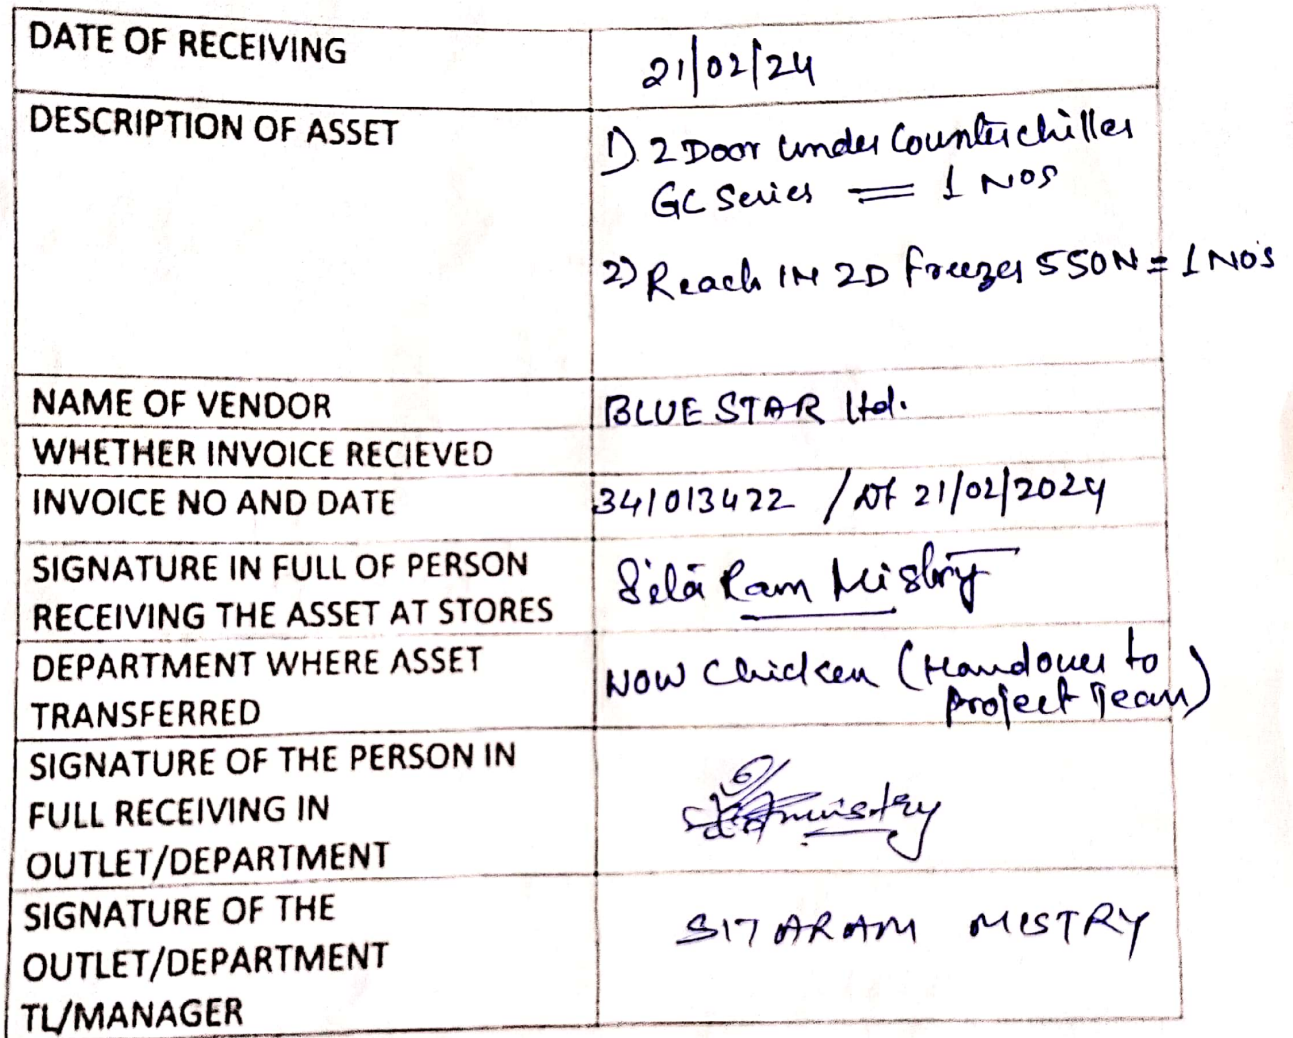 DATE OF RECEIVING
21/02/24
DESCRIPTION OF ASSET
1) 2 Door under Counter chiller
GC Series = 1 NOS
2) Reach IN 2D freezer 550N = 1 NO'S
NAME OF VENDOR
BLUE STAR Ltd.
WHETHER INVOICE RECIEVED
INVOICE NO AND DATE
341013422 / Dt 21/02/2024
SIGNATURE IN FULL OF PERSON
RECEIVING THE ASSET AT STORES
Sita Ram Mistry
DEPARTMENT WHERE ASSET
TRANSFERRED
NOW Chicken (Handover to
Project Team)
SIGNATURE OF THE PERSON IN
FULL RECEIVING IN
OUTLET/DEPARTMENT
mistry
SIGNATURE OF THE
OUTLET/DEPARTMENT
TL/MANAGER
SITARAM MISTRY